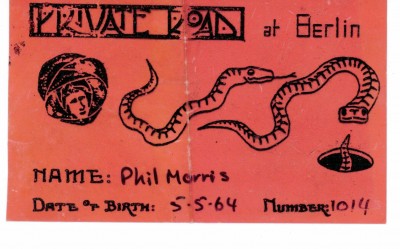 PRIVATE ROAD at Berlin
NAME: Phil Morris
DATE OF BIRTH: 5-5-64 NUMBER: 1014